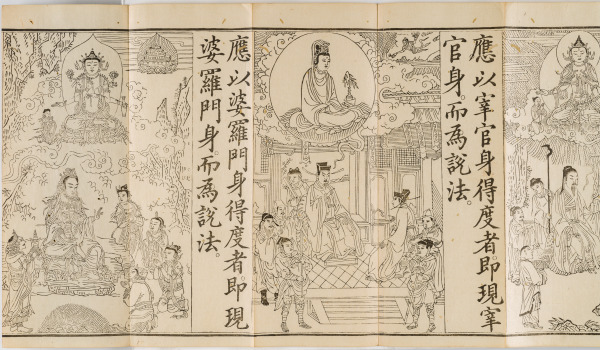 應以宰官身得度者。即現宰
官身。而為說法。
應以婆羅門身得度者。即現
婆羅門身。而為說法。